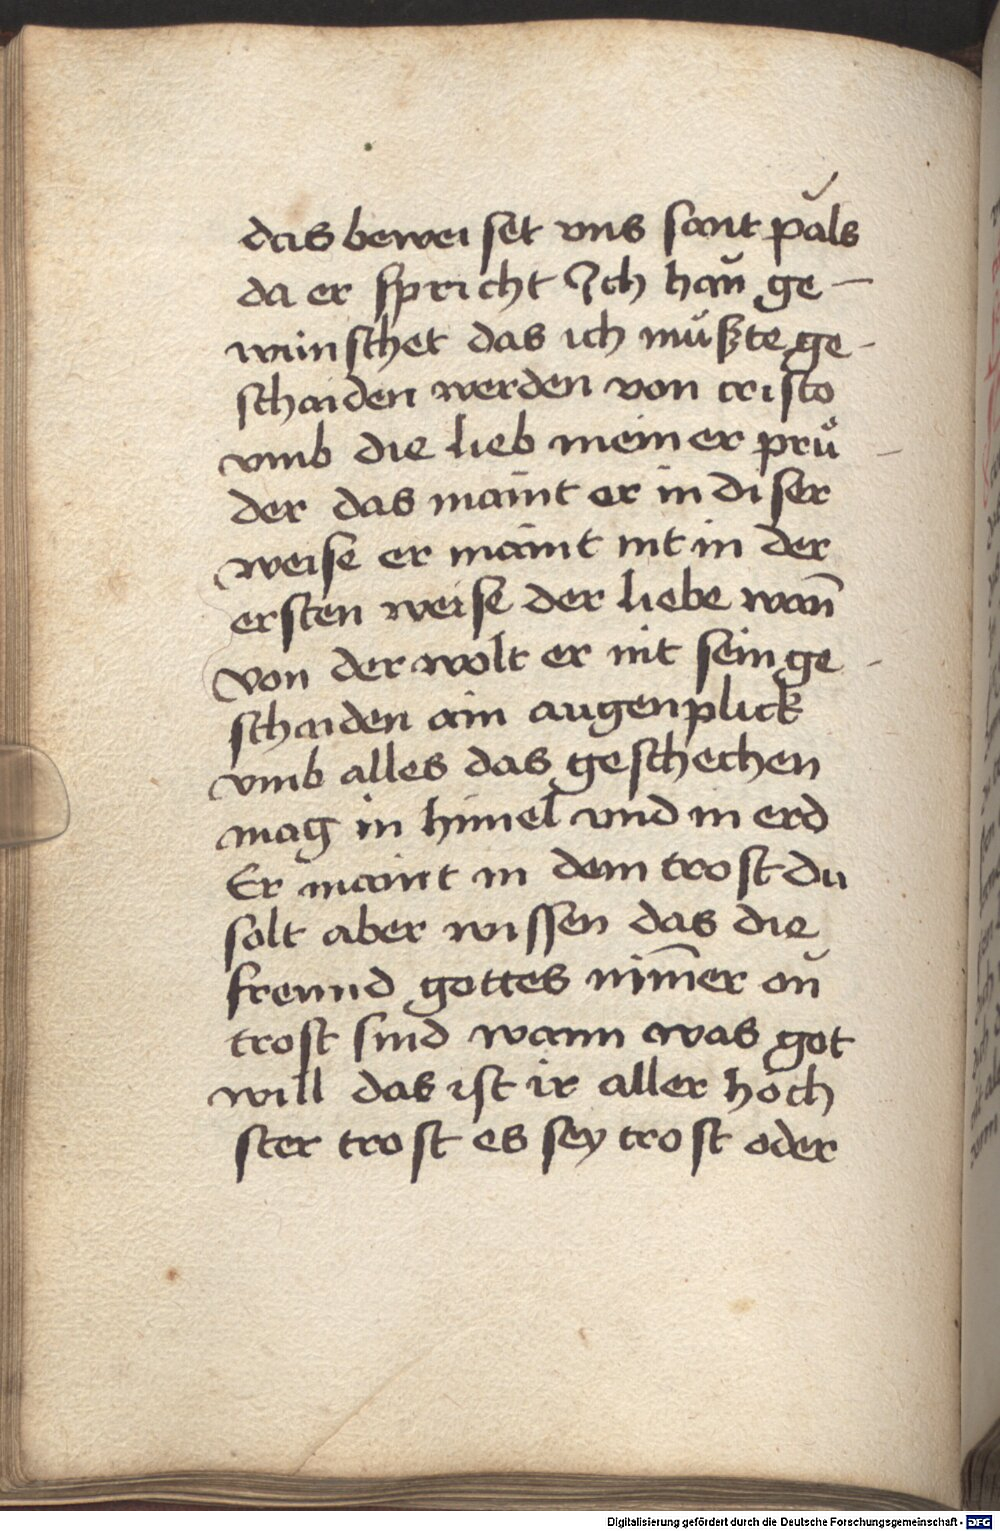 das beweiset vns sant pǎls
da er spricht Ich hǎn ge-
winschet das ich mǔszte ge-
schaiden werden von cristo
vmb die lieb meiner prů-
der das maint er in diser
weise er maint nit in der
ersten weise der liebe wan̄
von der wolt er nit sein ge-
schaiden ain augenplick
vmb alles das geschechen
mag in himel vnd in erd
Er maint in dem trost du
solt aber wissen das die
freund gottes nim̄er ǒn
trost sind wann was got
will das ist ir aller hoch
ster trost es sey trost oder
Digitalisierung gefördert durch die Deutsche Forschungsgemeinschaft - DFG